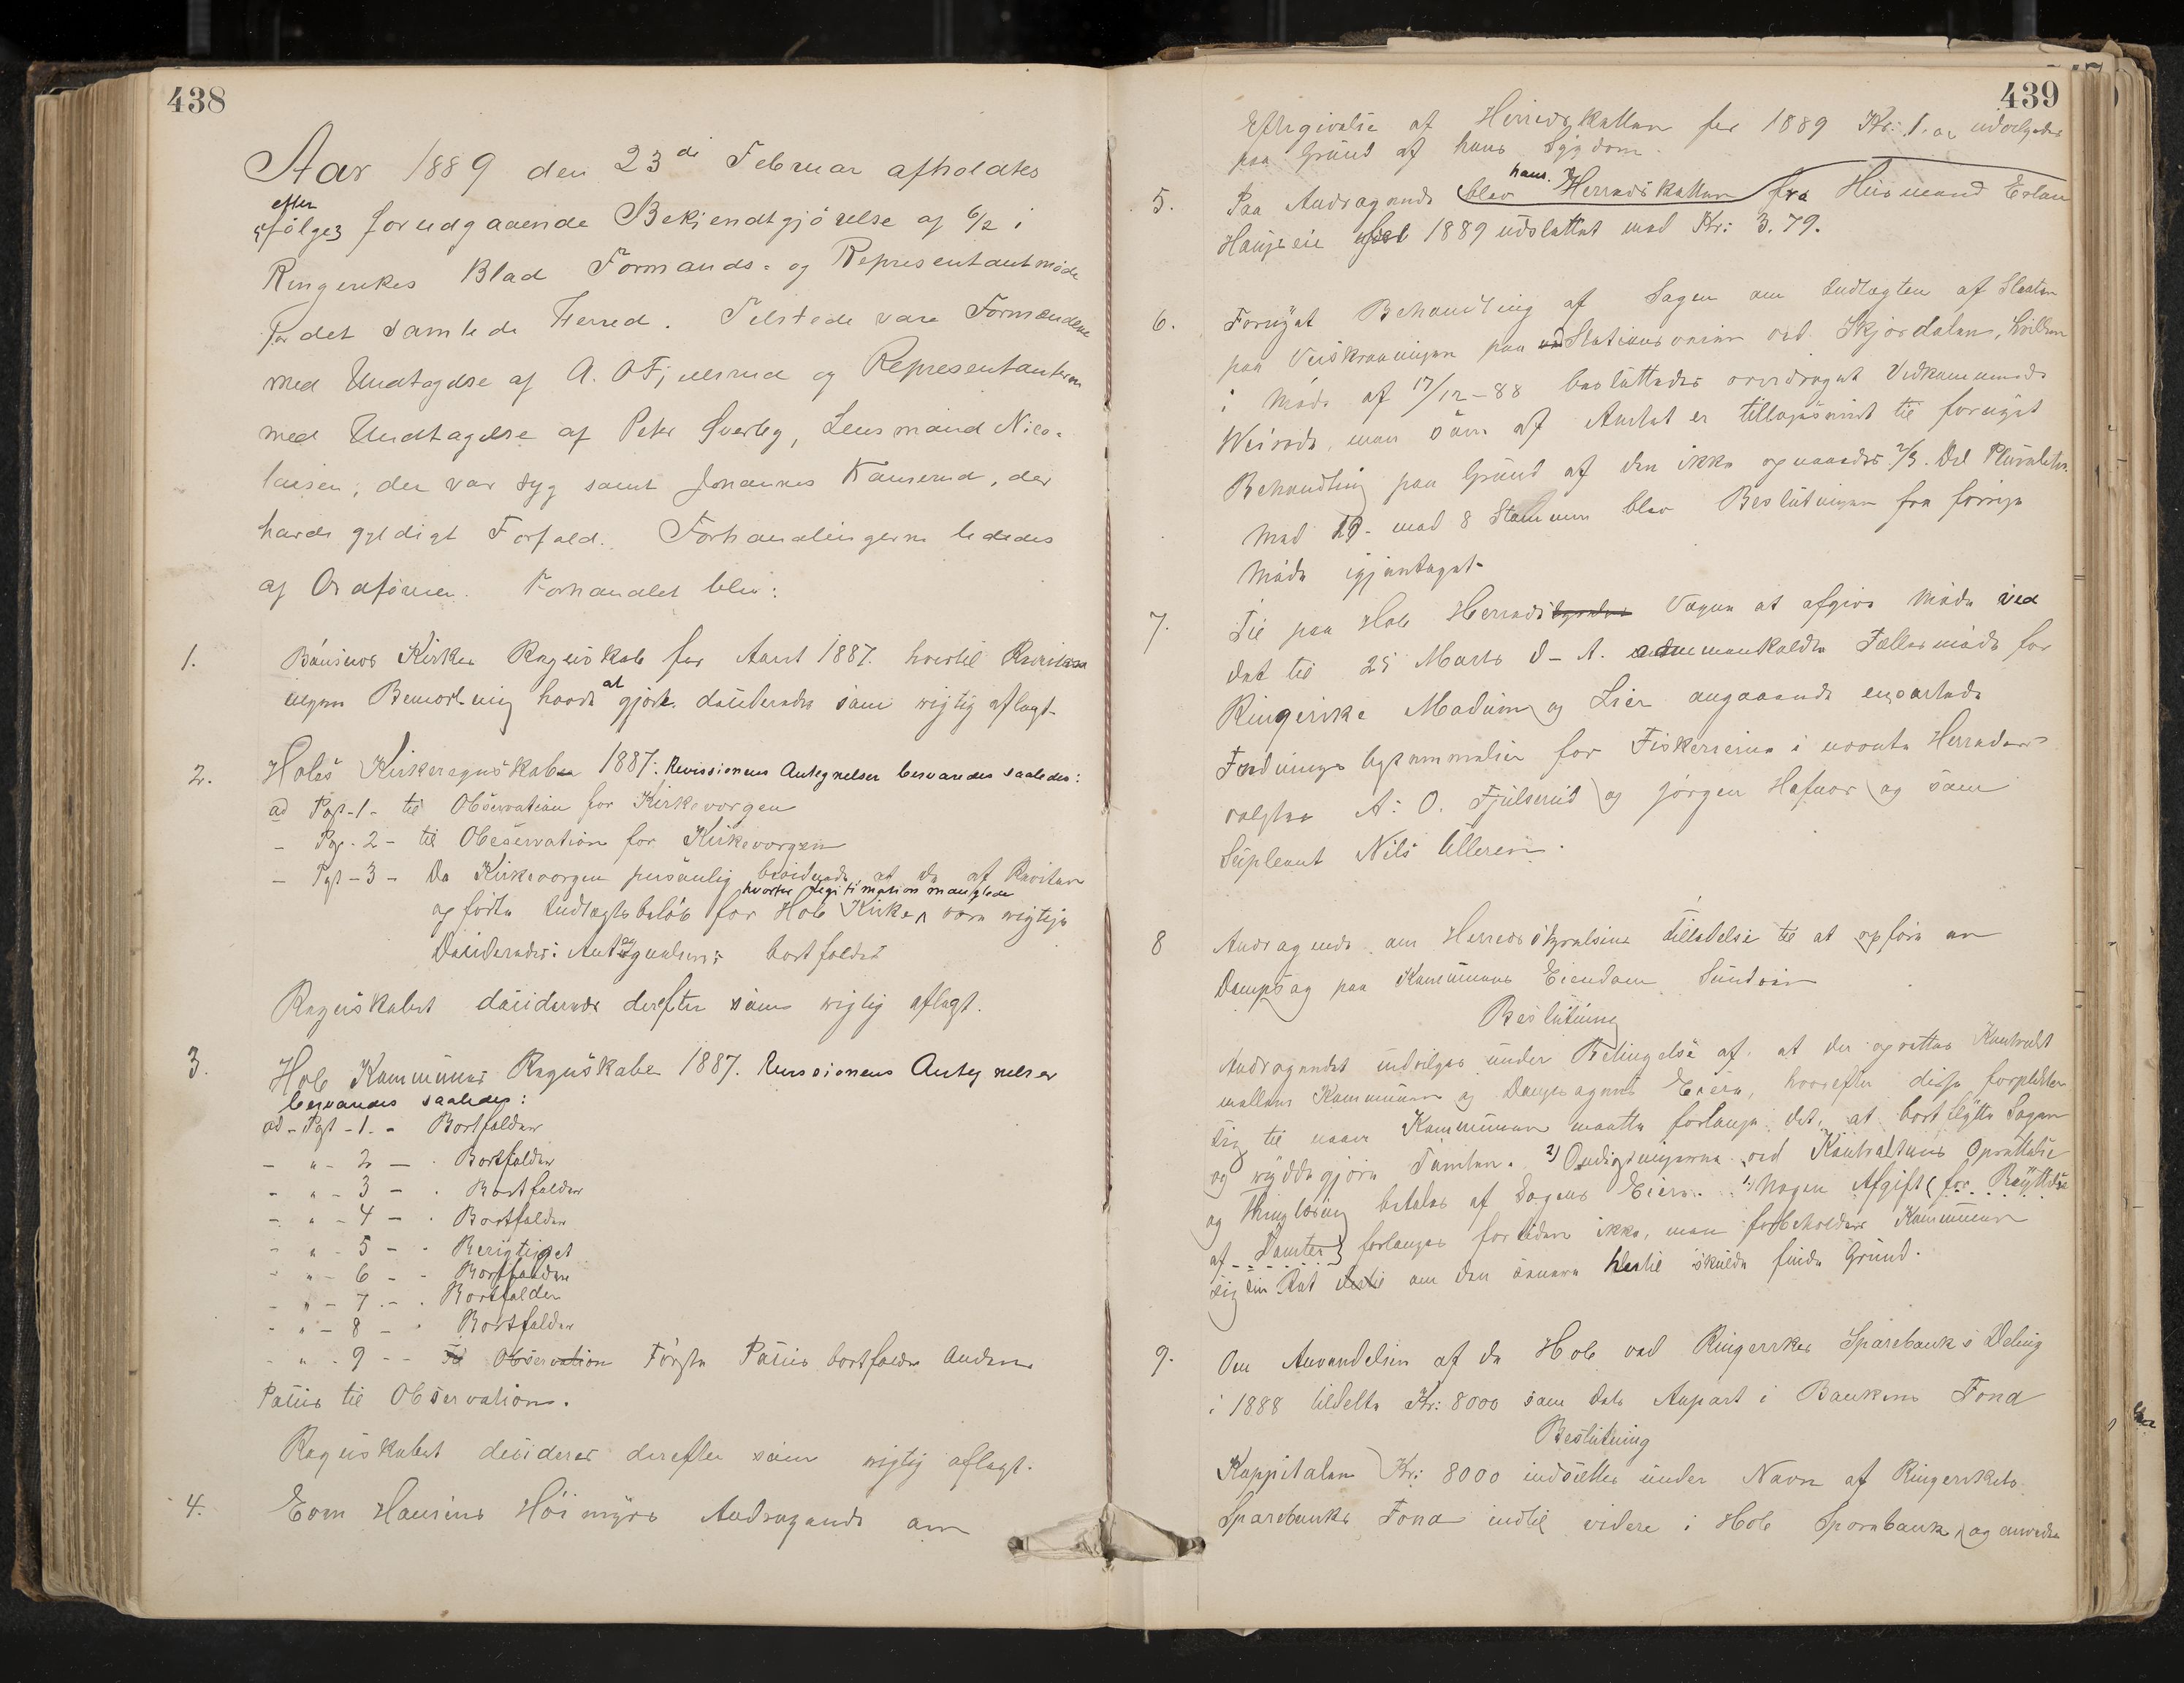 438
Aar 1889 den 23de Februar afholdtes
efter
følge forudgaaende Bekjendtgjørelse af 6/2 i
Ringerikes Blad Formands- og Representantmøde
for det samlede Herred. Tilstede vare Formændene
med Undtagelse af A. O Fjulsrud og Representanterne
med Undtagelse af Peter Sverby, Lensmand Nico-
laisen, der var syg samt Johannes Kamserud, der
havde gyldigt Forfald. Forhandlingerne lededes
af Ordføreren. Forhandlet blev:
1. Bønsnes Kirkes Regnskab for Aaret 1887. hvortil Revisionen
ingen Bemærkning havde at gjøre deciderades som rigtig aflagt.
2. Holes Kirkeregnskab 1887: Revissionens Antegnelser besvaredes saaledes:
ad Post-1- til Observation for Kirkevergen
- Post-2- til Observation for Kirkevergen
- Post-3- Da Kirkevergen personlig bevidnede at de af Revisor
hvorfor Legitimation manglede
opførte Indtægtsbeløb for Hole Kirke vare rigtige
Decideredes: Antegnelsen bortfaldt
Regnskabet decideredes derefter som rigtig aflagt.
3. Hole Kommunes Regnskaber 1887. Revssionens Antegnelser
besvaredes saaledes:
ad-Post-1.- Bortfalder
- " - 2 - . Bortfalder
- " - 3 - . Bortfalder
- " - 4 - . Bortfalder
- " - 5 - . Berigtiget
- " - 6 - - Bortfalder
- " - 7 - . Bortfalder
- " - 8 - . Bortfalder
- " - 9 - - Til Observation Første Passus bortfalder Anden
Passus til Observation.
Regnskabet decideres derefter som rigtig aflagt.
4. Hansens Høimyrs Andragende om
439
Eftergivelse af Herredsskatten for 1889 Kr: 1. udvelgedes
paa Grund af hans Sygdom.
hans.
5. Paa Andragende blev Herredsskatten fra Husmand
1889 udslettet med Kr: 3.79.
6. Fornyet Behandling af Sagen om Indtægten af Slaatten
paa Veiskraaningen paa Stationsveien ved Skjørdalen, hvilken
i Møde af 17/12-88 besluttedes overdraget Vedkommende
Veirode, men som af Amtet er tilbagesendt til fornyet
Behandling paa Grund af den ikke opnaaede 2/3. Del Pluralitet.
Med 19- mod 8 Stemmer blev Beslutningen fra forrige
Møde igjentaget-
7. Til paa Hole Herredsstyrelses Vegne at afgive Møde ved
det til 25 Marts d-A. sammenkaldte Fællesmøde for
Ringerike Modum og Lier angaaende ensartede
Fredningsbestemmelser for Fiskerierne i nævnte Herreder
valgtes A: O. Fjulsrud og Jørgen Hafnor og som
Supleant Nils Ulleren.
8 Andragende om Herredsstyrelsens Tilladelse til at opføre en
Dampsag paa Kommunens Eiendom Sundøen
Beslutning
Andragendet indvilges under Betingelse af at der oprettes Kontrakt
mellem Kommunen og Dampsagens Eiere, hvorefter disse forpligter
sig til naar Kommunen maatte forlange det, at bortflytte Sagen
og ryddiggjøre Tomten. 2) Omkostningerne ved Kontraktens Oprettelse
og Thinglæsning betales af Sagens Eiere. 1) Nogen Afgift for Benyttelse
af Tomten forlanges fortiden ikke, men forbeholder Kommunen
sig sin Ret dertil om den senere hertil skulde finde Grund.
9. Om Anvendelsen af de Hole ved Ringerikes Sparebanks Deling
i 1888 tildelte Kr: 8000 som dets Anpart i Bankens Fond
Beslutning
Kappitalen Kr: 8000 indsættes under Navn af Ringerikets
Sparebanks Fond indtil videre i Hole Sparebank, og anvendes